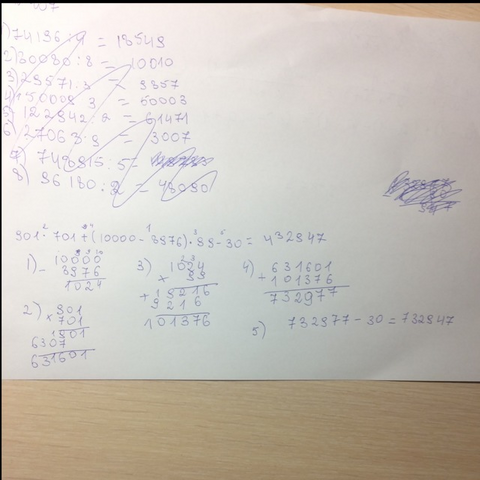 1) 74196:4 = 18549
2) 80080:8 = 10010
3) 29571:3 = 9857
4) 150009:3 = 50003
5) 122942:2 = 61471
6) 27063:9 = 3007
7) 748915:5 =
8) 96180:2 = 48090
901·701+(10000-8976)·99-30 = 432947
1) 10000
- 8976
1024
2) 901
× 701
901
6307
631601
3) 1024
× 99
+ 9216
9216
101376
4) 631601
+ 101376
732977
5) 732977-30=732947